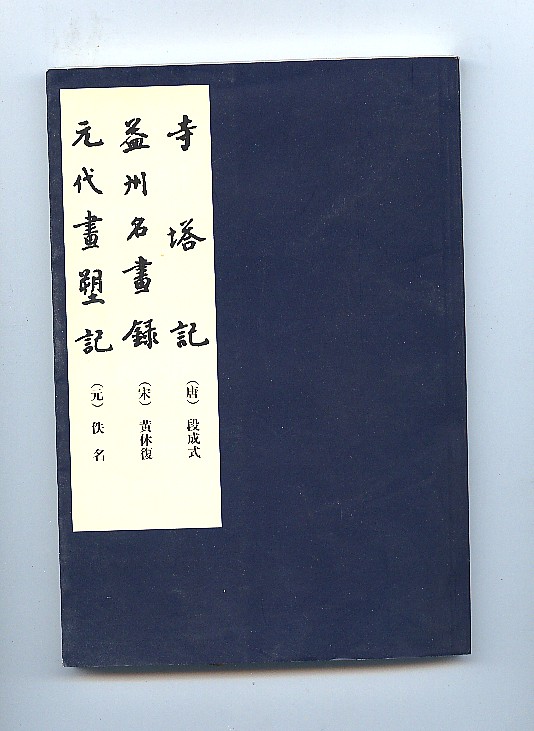 寺塔記 (唐) 段成式
益州名畫錄 (宋) 黃休復
元代畫塑記 (元) 佚名